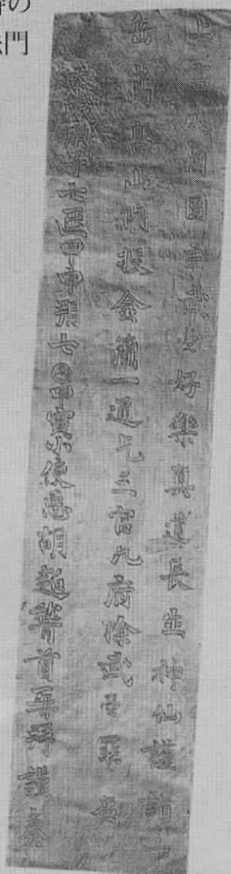 の
門
上言大周圀主武曌好樂真道長生神仙謹詣中
岳嵩高山門投金簡一通乞三官九府除武曌罪名
太歲庚子七𠥱甲申朔七𡆠甲寅小使𢘑胡超稽首再拜謹奏